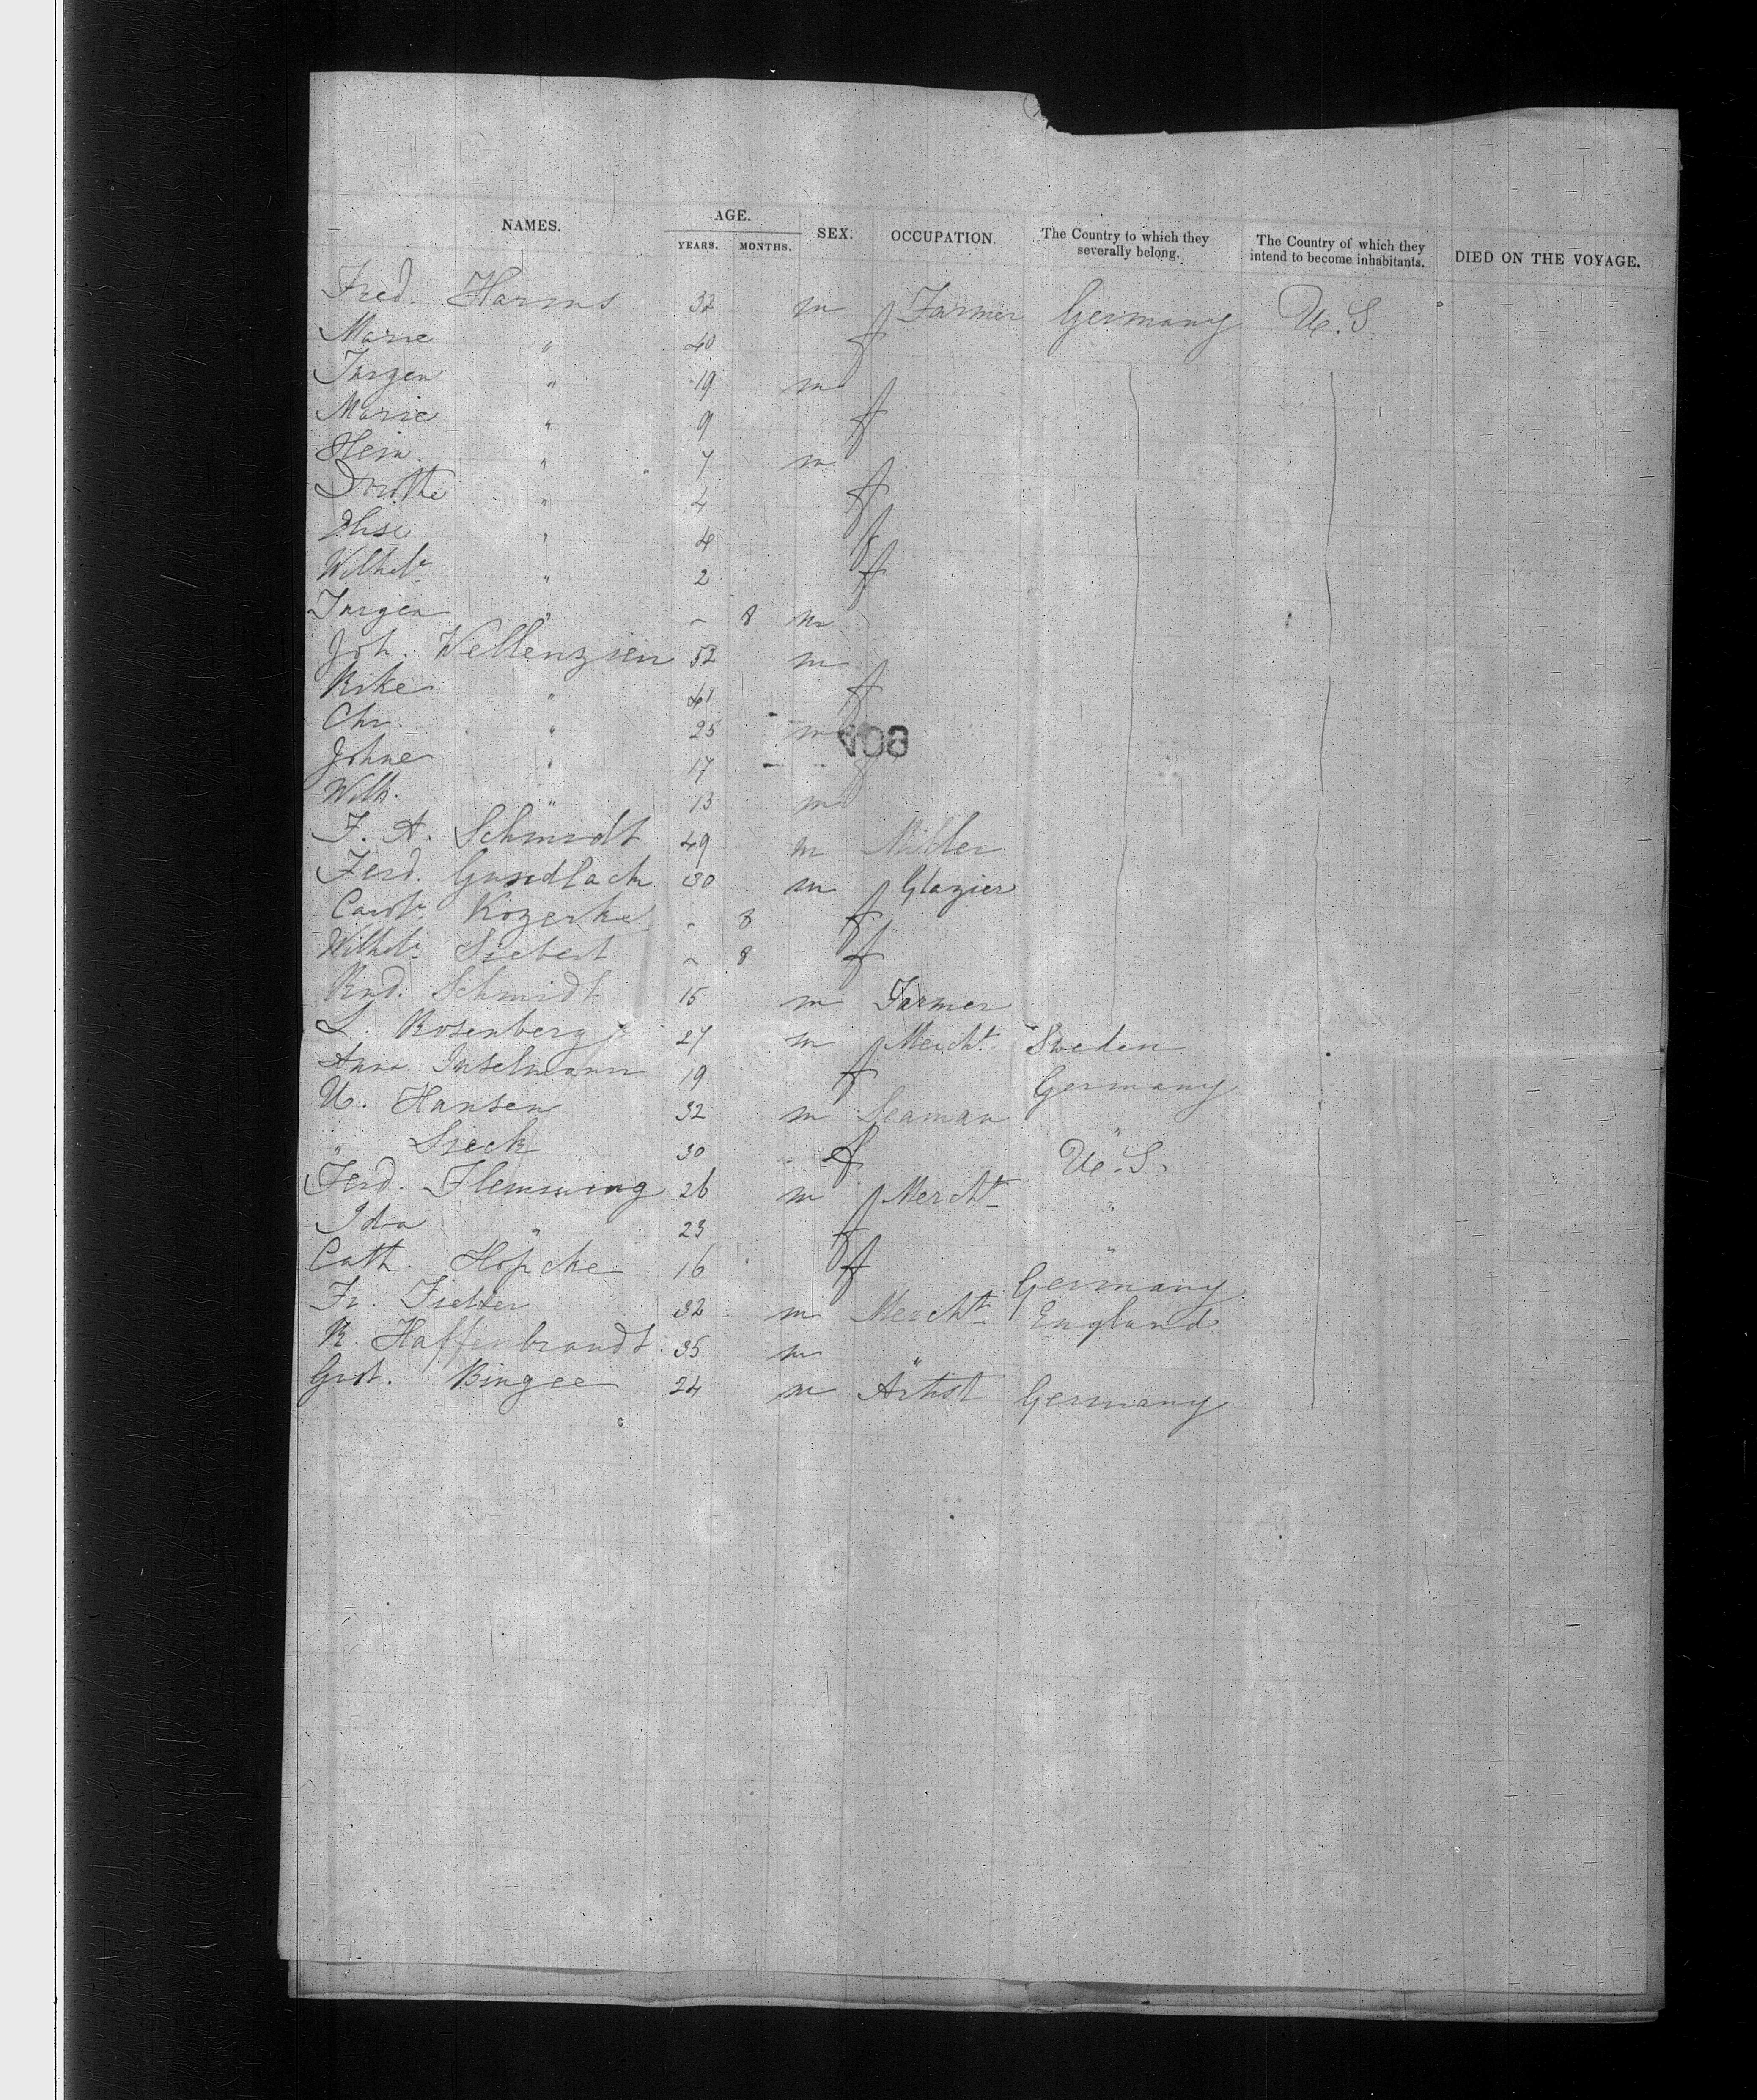 NAMES. AGE. SEX. OCCUPATION. The Country to which they severally belong. The Country of which they intend to become inhabitants. DIED ON THE VOYAGE.
YEARS. MONTHS.
Fred. Harms 32 m Farmer Germany U.S
Marie " 40 f
Jurgen " 19 m
Marie " 9 f
Hein. " 7 m
Dorothe " 4 f
Ilse " 4 f
Wilhe " 2 f
Jurgen " - 8 m
Joh. Wellenzien 52 m
Rike " 41 f
Chr. " 25 m
Johne " 17 f
Wilh. " 13 m
F. A. Schmidt 49 m Miller
Ferd. Gundlach 30 m Glazier
Carol Kozerke - 8 f
Wilhe Siebert - 8 f
Rud. Schmidt 15 m Farmer
L. Rosenberg 27 m Mercht. Sweden
Anna Inselmann 19 f Germany
U. Hansen 32 m Seaman "
" Sieck 30 f U.S.
Ferd. Flemming 26 m Mercht "
Ida " 23 f "
Cath. Hopcke 16 f Germany
Fr. 32 m Mercht England
R. Haffenbrandt 35 m "
Gust. Bingee 24 m Artist Germany